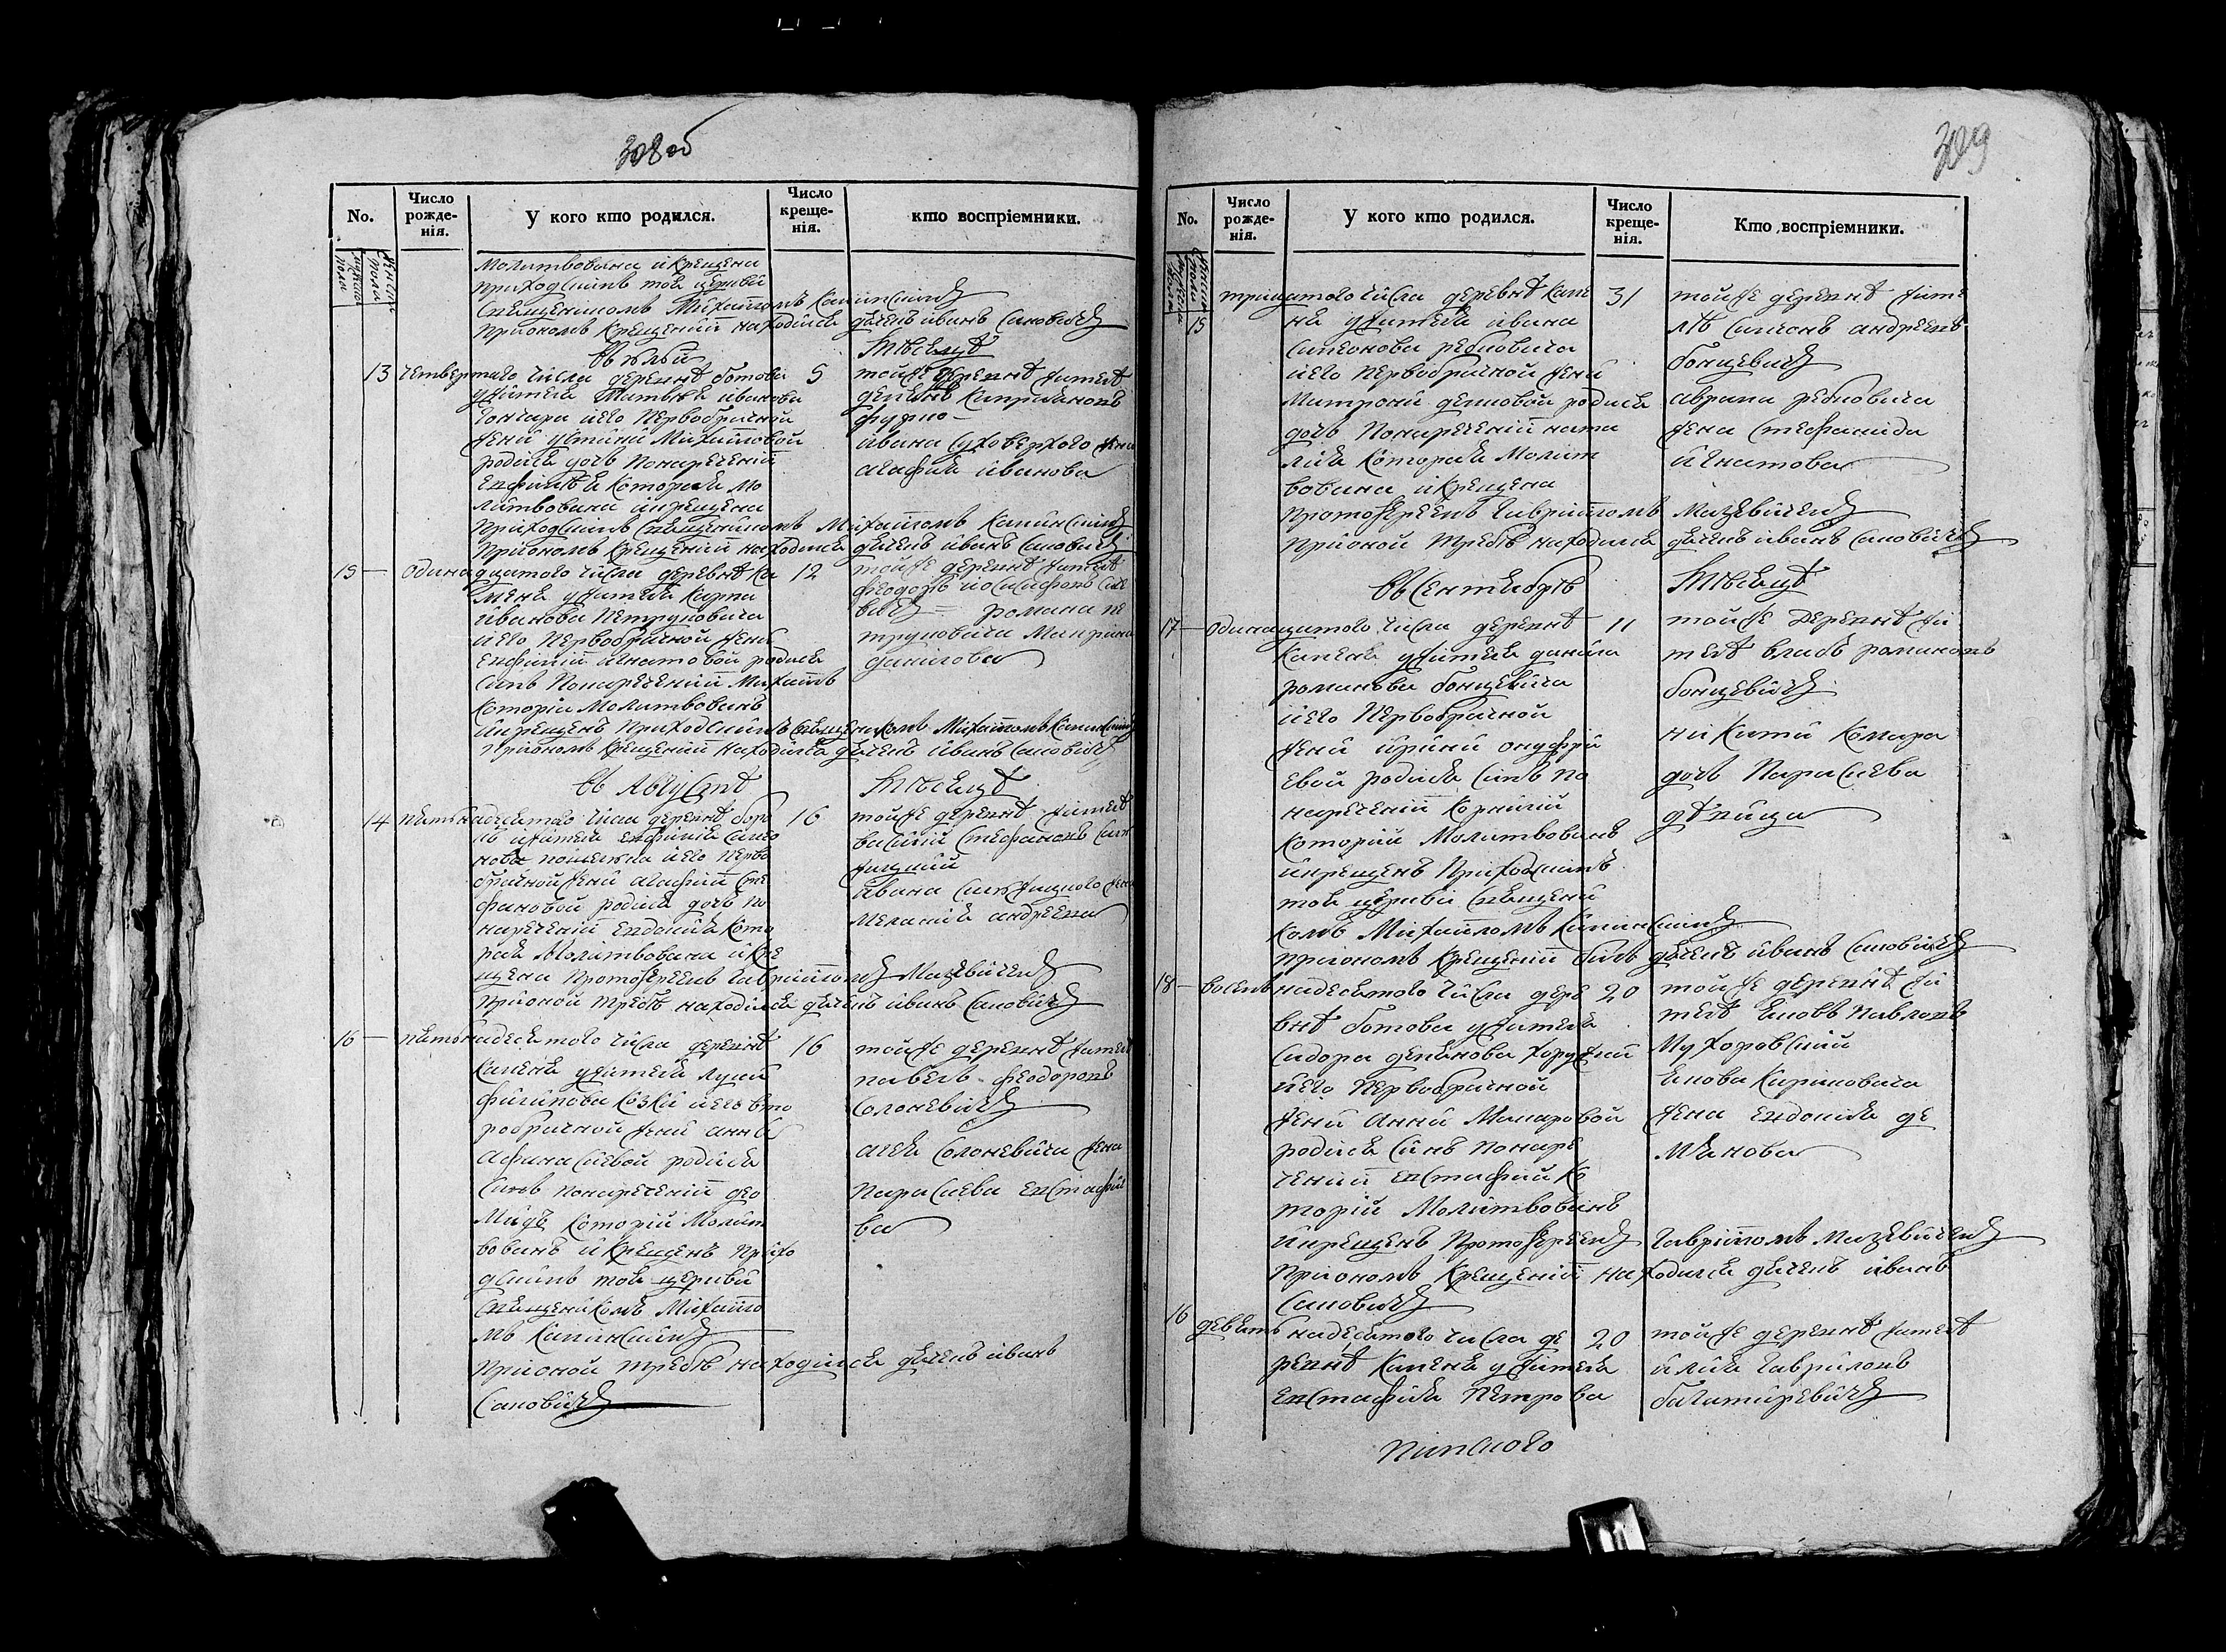 308 об
No.
Число рожде-
нія.
У кого кто родился.
Число креще-
нія.
кто воспріемники.
мужеска пола
женска пола
Молитвована икрещена
приходскимъ тоя церкви
Священникомъ Михаиломъ
приономъ крещеніи находился дьячекъ иванъ Саковичъ
Въ июли
Мѣсяцѣ
13 четвертаго числа деревнѣ ботова 5
ужителя Матвѣя иванова
гончара иего первобрачной
жени устини Михайловой
родися дочь понареченіи
Евфимія которая мо
литвована икрещена
приходскимъ священникомъ Михаиломъ
приономъ крещеніи находился дьячекъ иванъ Саковичъ
тойже деревнѣ жител
демянъ Киприяновъ
ивана Суховерхого жена
агафия иванова
15 одинадцатого числа деревнѣ ка 12
меня ужителя карпа
иванова петруковича
иего первобрачной жени
Евфиміи игнатовой родися
Синъ понареченіи Михаилъ
которіи молитвованъ
икрещенъ приходскимъ священикомъ Михаиломъ
приономъ крещеніи находился дьячекъ иванъ Саковичъ
тойже деревнѣ жител
феодоръ
вичъ романа пе
труковича
данилова
Въ Августѣ
Мѣсяцѣ
14 пятьнадесятого числа деревнѣ 16
нова иего перво
брачной жени агафіи сте
фановой родися дочь по
нареченіи Евдокія кото
рая Молитвована икре
щена протоіереемъ гавріиломъ Мацевичемъ
прионой требѣ находился дьячекъ иванъ Саковичъ
тойже деревнѣ жител
василій Стефановъ
ивана жена
меланія андреева
16 пятьнадесятого числа деревнѣ 16
каменя ужителя луки
филипова козки иего вто
робрачной жени анни
афанасиевой родися
Синъ понареченіи дио
мидъ которій Молит
вованъ икрещенъ прихо
дскимъ тоя церкви
священикомъ Михаило
мъ
прионой требѣ находился дьячекъ иванъ
Саковичъ
тойже деревнѣ жител
павелъ феодоровъ
Солоневичъ
Солоневича жена
параскева Евстафие
ва
309
No.
Число
рожде-
нія.
У кого кто родился.
Число
креще-
нія.
Кто воспріемники.
15 трицатого числа деревнѣ каме 31
ня ужителя ивана
Симеонова
иего первобрачной жени
Матрони демковой родися
дочь понареченіи ната
лия которая молит
вована икрещена
протоіереемъ гавріиломъ Мацевичемъ
прионой требѣ находился дьячекъ иванъ Саковичъ
тойже деревнѣ жите
ль Симеонъ андреевъ
бонцевичъ
аврама
жена стефанида
игнатова
Въ Сентябрѣ
Мѣсяцѣ
17 одинацатого числа деревнѣ 11
каменя ужителя данила
романова бонцевича
иего первобрачной
жени ирини онуфри
евой родися Синъ по
нареченіи корнилій
которій Молитвованъ
икрещенъ приходскимъ
тоя церкви Священи
комъ Михаиломъ
приономъ крещеніи билъ дьячекъ иванъ Саковичъ
тойже деревнѣ жи
тел власъ романовъ
бонцевичъ
никити комара
дочъ параскева
дѣвица
18 восемьнадесятого числа дере 20
внѣ ботова ужителя
Сидора демянова
иего первобрачной
жени анни Макаровой
родися Синъ понаре
ченіи Евстафий ко
торій Молитвованъ
икрещенъ протоіереемъ гавріиломъ Мацевичемъ
приономъ крещеніи находился дьячекъ иванъ
Саковичъ
тойже деревнѣ жи
тел яковъ павловъ
якова
жена евдокия де
мянова
16 девятьнадесятого числа де 20
ревнѣ каменя ужителя
Евстафия петрова
тойже деревнѣ жител
илия гавриловъ
багатиревичъ
пинского